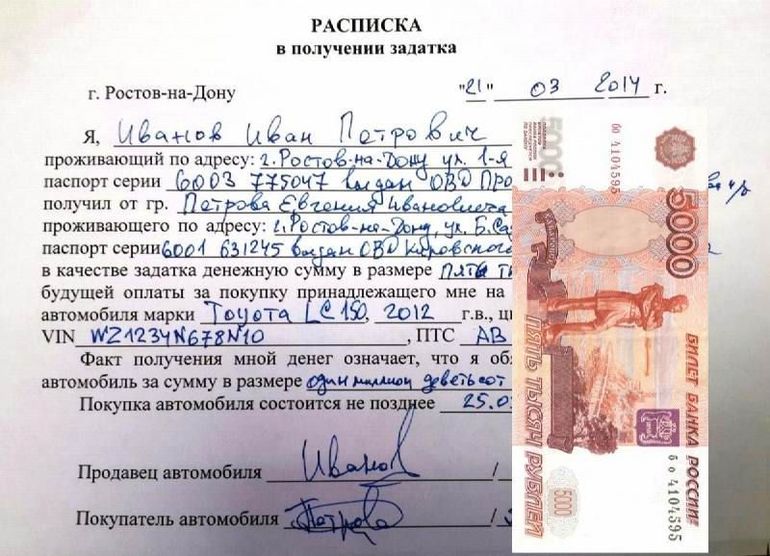 РАСПИСКА
в получении задатка
г. Ростов-на-Дону "21" 03 2014 г.
Я, Иванов Иван Петрович
проживающий по адресу: г. Ростов-на-Дону ул. 1-я
паспорт серии 6003 775047 выдан ОВД ПРО
получил от гр. Петрова Евгения Ивановича
проживающего по адресу: г. Ростов-на-Дону, ул. Б. Са
паспорт серии 6001 631245 выдан ОВД Кировского
в качестве задатка денежную сумму в размере Пять т
будущей оплаты за покупку принадлежащего мне на
автомобиля марки Toyota LC 150, 2012 г.в., ц
VIN WZ1234N678N10, ПТС АВ
Факт получения мной денег означает, что я об
автомобиль за сумму в размере один миллион девятьсот
Покупка автомобиля состоится не позднее 25.0
Продавец автомобиля Иванов /
Покупатель автомобиля Петров /
5000
бо 4104595
5000
ПЯТЬ ТЫСЯЧ РУБЛЕЙ
БИЛЕТ БАНКА РОССИИ
бо 4104595
5000